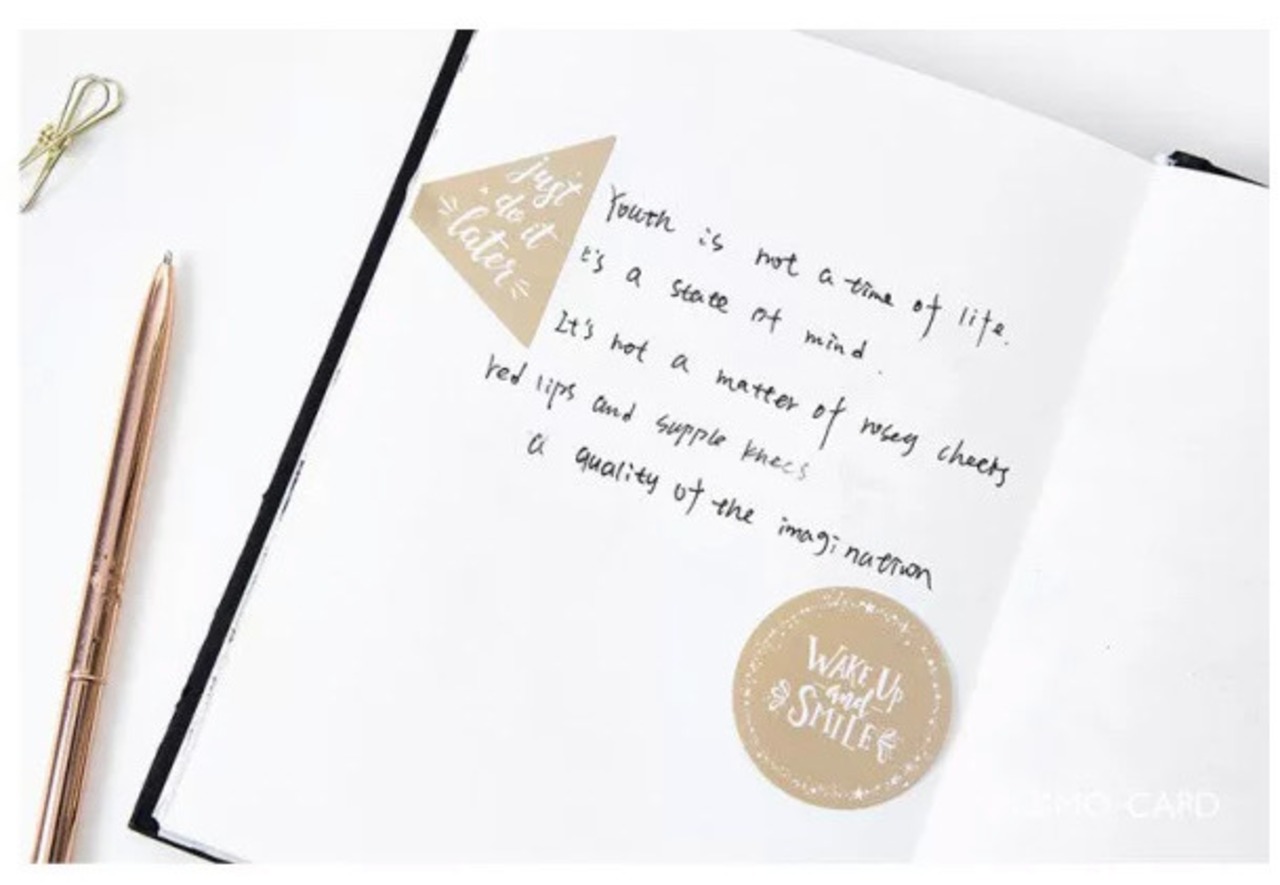 just
do it
later
Youth is not a time of life.
t's a state of mind.
It's not a matter of rosey cheeks
red lips and supple knees
a quality of the imagination
WAKE UP
and
SMILE
MO-CARD